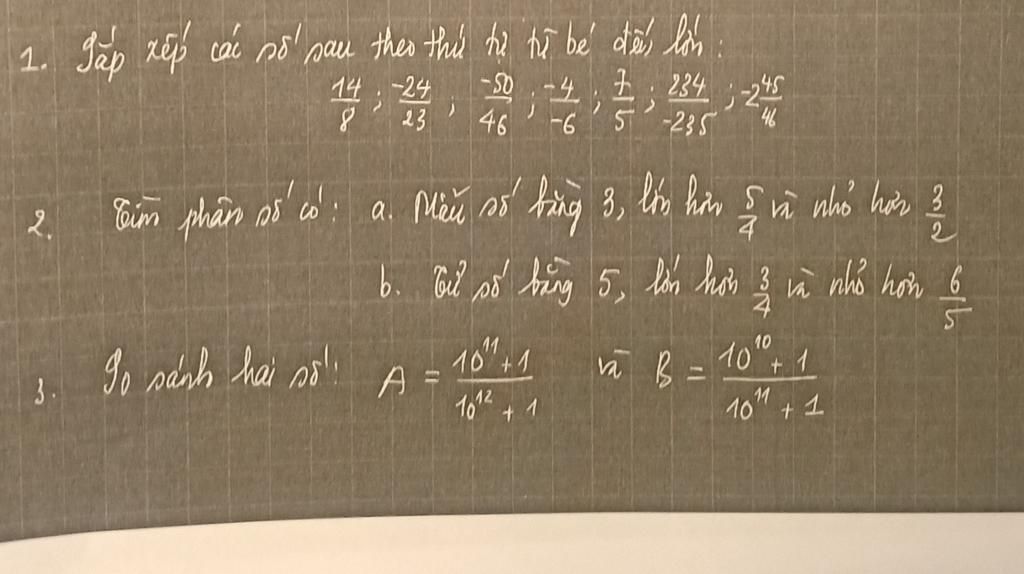 1. Sắp xếp các số sau theo thứ tự từ bé đến lớn:
14/8 ; -24/23 ; -50/46 ; -4/-6 ; 7/5 ; 234/-235 ; -2 45/46
2. Tìm phân số có: a. Mẫu số bằng 3, lớn hơn 5/4 và nhỏ hơn 3/2
b. Tử số bằng 5, lớn hơn 3/4 và nhỏ hơn 6/5
3. So sánh hai số: A = (10^11 + 1)/(10^12 + 1) và B = (10^10 + 1)/(10^11 + 1)